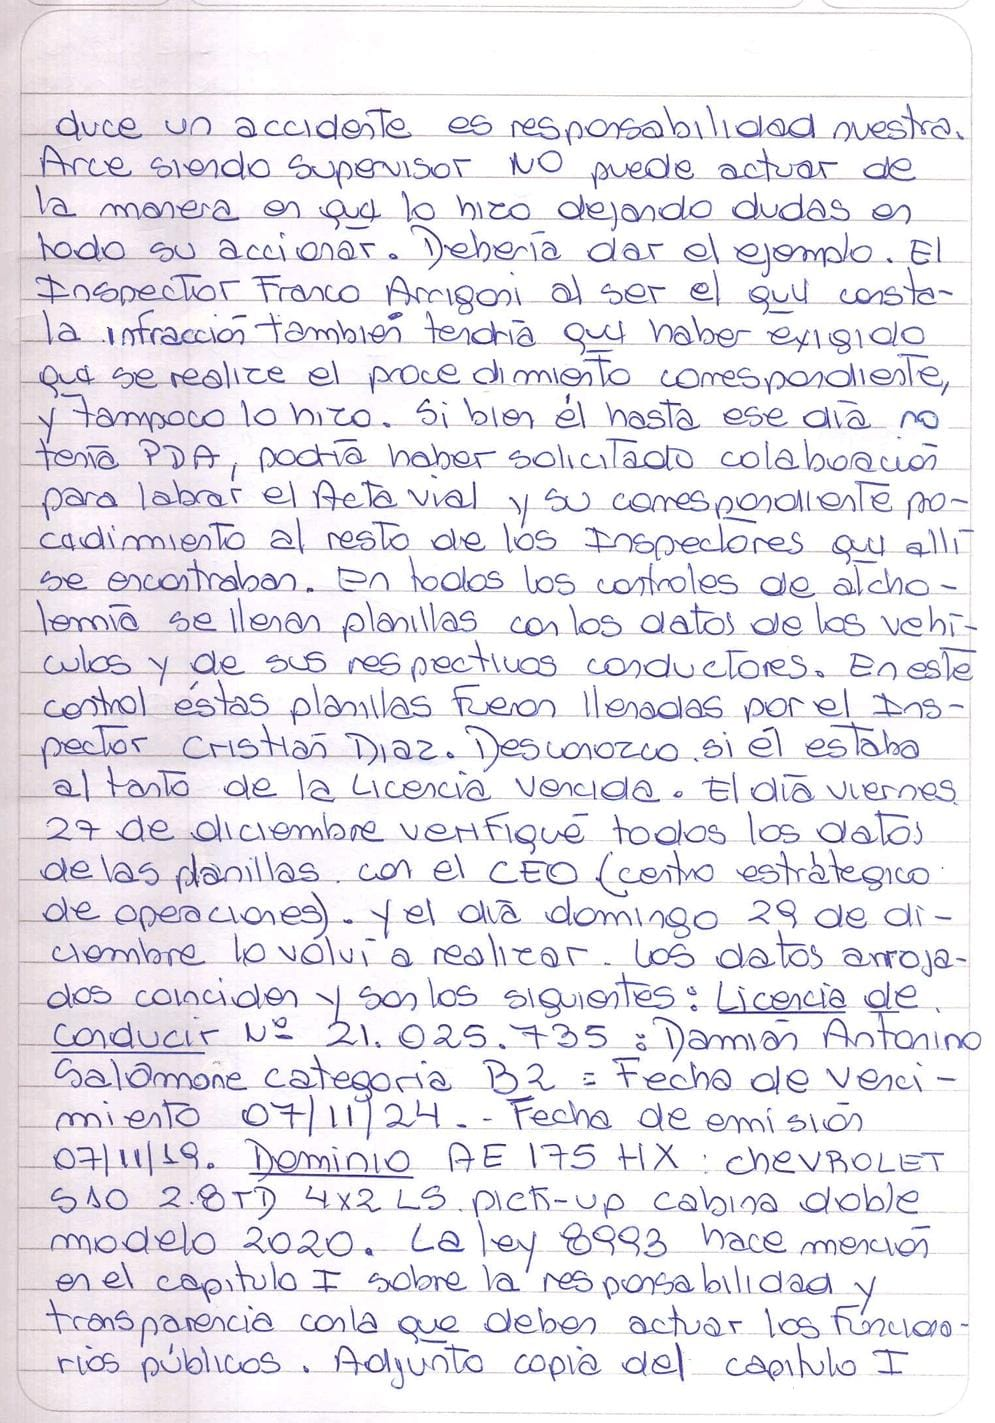 duce un accidente es responsabilidad nuestra.
Arce siendo Supervisor NO puede actuar de
la manera en que lo hizo dejando dudas en
todo su accionar. Debería dar el ejemplo. El
Inspector Franco Arrigoni al ser el que consta-
la infracción también tendría que haber exigido
que se realize el procedimiento correspondiente,
y tampoco lo hizo. Si bien él hasta ese día no
tenía PDA, podría haber solicitado colaboración
para labrar el Acta vial y su correspondiente pro-
cedimiento al resto de los Inspectores que allí
se encontraban. En todos los controles de alcho-
lemia se llenan planillas con los datos de los vehí-
culos y de sus respectivos conductores. En este
control éstas planillas fueron llenadas por el Ins-
pector Cristian Diaz. Desconozco si él estaba
al tanto de la Licencia vencida. El día viernes
27 de diciembre verifiqué todos los datos
de las planillas con el CEO (centro estrátegico
de operaciones). y el día domingo 29 de di-
ciembre lo volví a realizar. Los datos arroja-
dos coinciden y son los siguientes: Licencia de
conducir Nº 21.025.735 : Damián Antonino
Salomone categoria B2 = Fecha de venci-
miento 07/11/24. - Fecha de emisión
07/11/19. Dominio AE 175 HX : CHEVROLET
S10 2.8TD 4x2 LS pick-up cabina doble
modelo 2020. La ley 8993 hace mención
en el capitulo I sobre la responsabilidad y
transparencia con la que deben actuar los funciona-
rios públicos. Adjunto copia del capítulo I